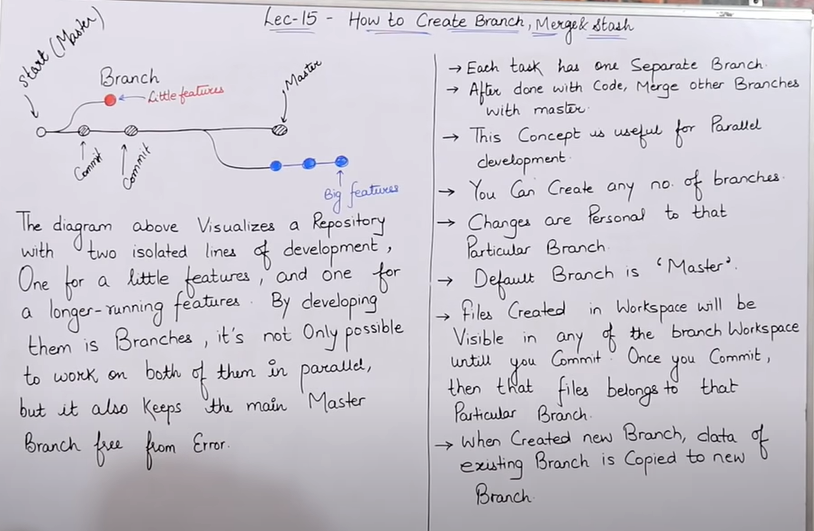 Lec-15 - How to Create Branch, Merge & Stash
Start (Master)
Branch
Little features
Master
Commit
Commit
Big features
The diagram above Visualizes a Repository
with two isolated lines of development,
One for a little features, and one for
a longer-running features. By developing
them is Branches, it's not Only possible
to work on both of them in parallel,
but it also Keeps the main Master
Branch free from Error.
→ Each task has one Separate Branch.
→ After done with Code, Merge other Branches
with master.
→ This Concept is useful for Parallel
development.
→ You Can Create any no. of branches.
→ Changes are Personal to that
Particular Branch.
→ Default Branch is 'Master'.
→ Files Created in Workspace will be
Visible in any of the branch Workspace
untill you Commit. Once you Commit,
then that files belongs to that
Particular Branch.
→ When Created new Branch, data of
existing Branch is Copied to new
Branch.